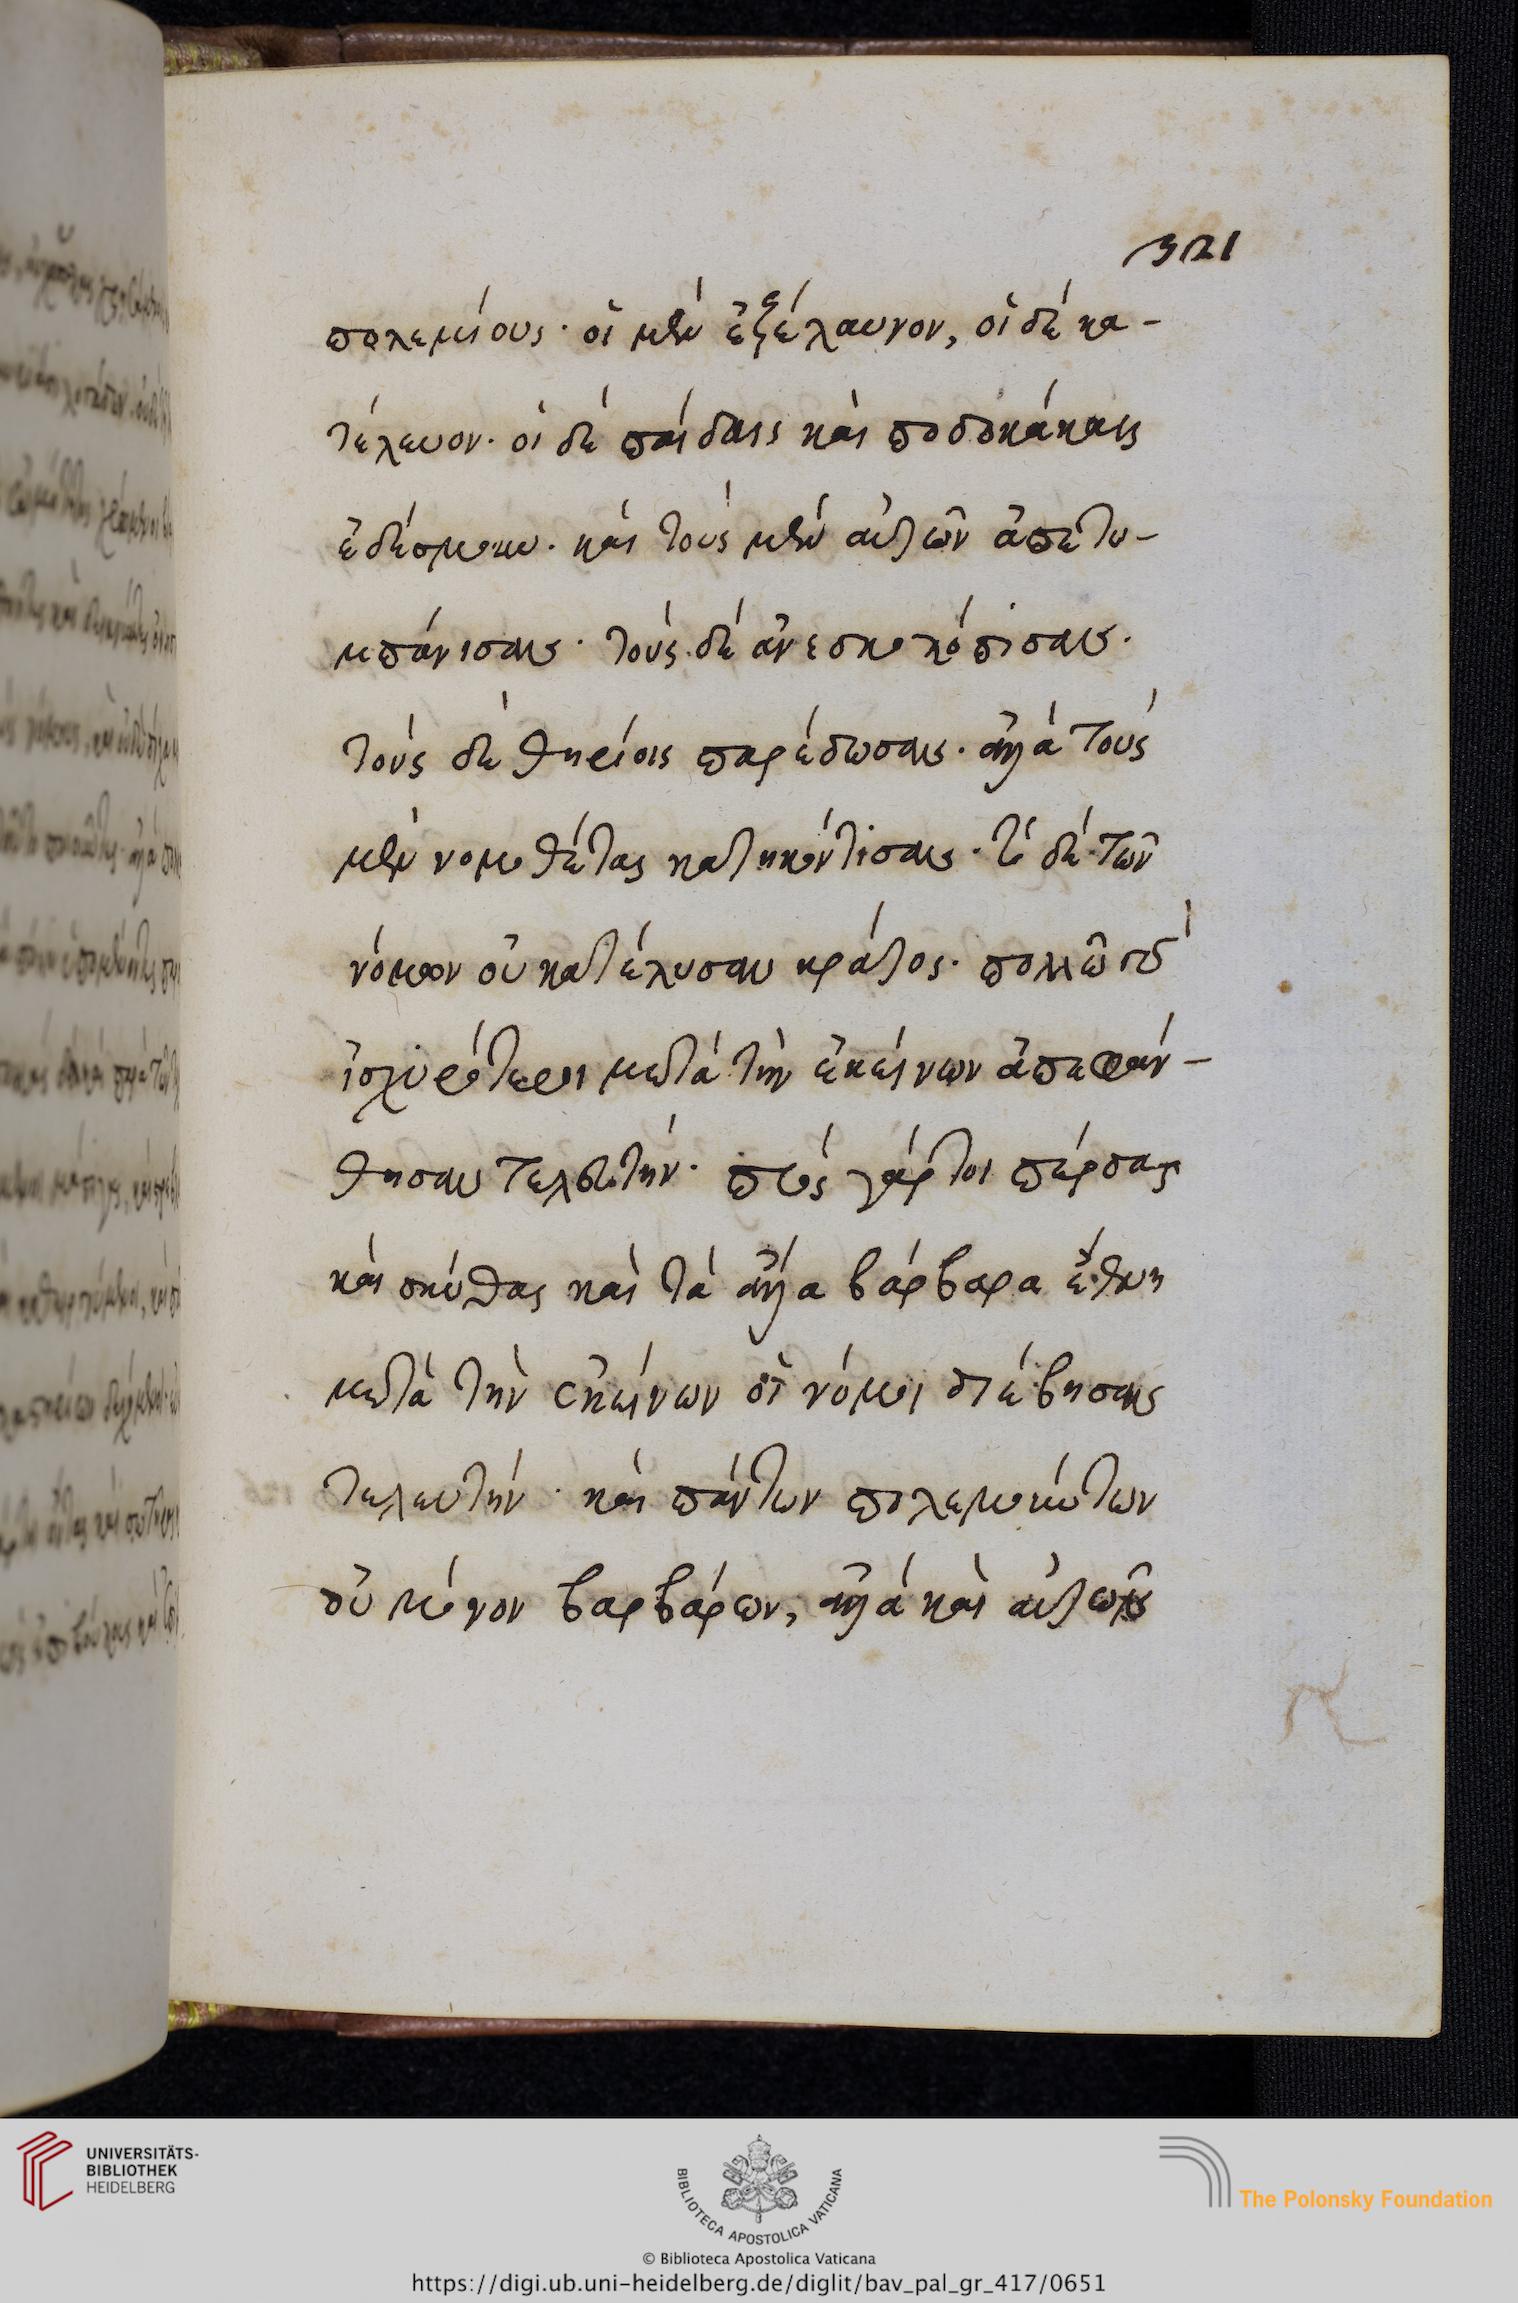 321
πολεμίους· οἱ μὲν ἐξέλαυνον, οἱ δὲ κα-
τέλευον· οἱ δὲ παίδαις καὶ ποδοκάκαις
ἐδέσμουν· καὶ τοὺς μὲν αὐτῶν ἀπετυ-
μπάνισαν· τοὺς δὲ ἀνεσκολόπισαν·
τοὺς δὲ θηρίοις παρέδωσαν· ἀλλὰ τοὺς
μὲν νομοθέτας κατηκόντισαν· τὸ δὲ τῶν
νόμων οὐ κατέλυσαν κράτος· πολλῶ δὲ
ἰσχυρότεροι μετὰ τὴν ἐκείνων ἀπεφάν-
θησαν τελευτήν· πρὸς γάρ τοι πέρσας
καὶ σκύθας καὶ τὰ ἄλλα βάρβαρα ἔθνη
μετὰ τὴν ἐκείνων οἱ νόμοι διέβησαν
τελευτήν· καὶ πάντων πολεμούντων
οὐ μόνον βαρβάρων, ἀλλὰ καὶ αὐτῶν
UNIVERSITÄTS-
BIBLIOTHEK
HEIDELBERG
BIBLIOTECA APOSTOLICA VATICANA
The Polonsky Foundation
© Biblioteca Apostolica Vaticana
https://digi.ub.uni-heidelberg.de/diglit/bav_pal_gr_417/0651